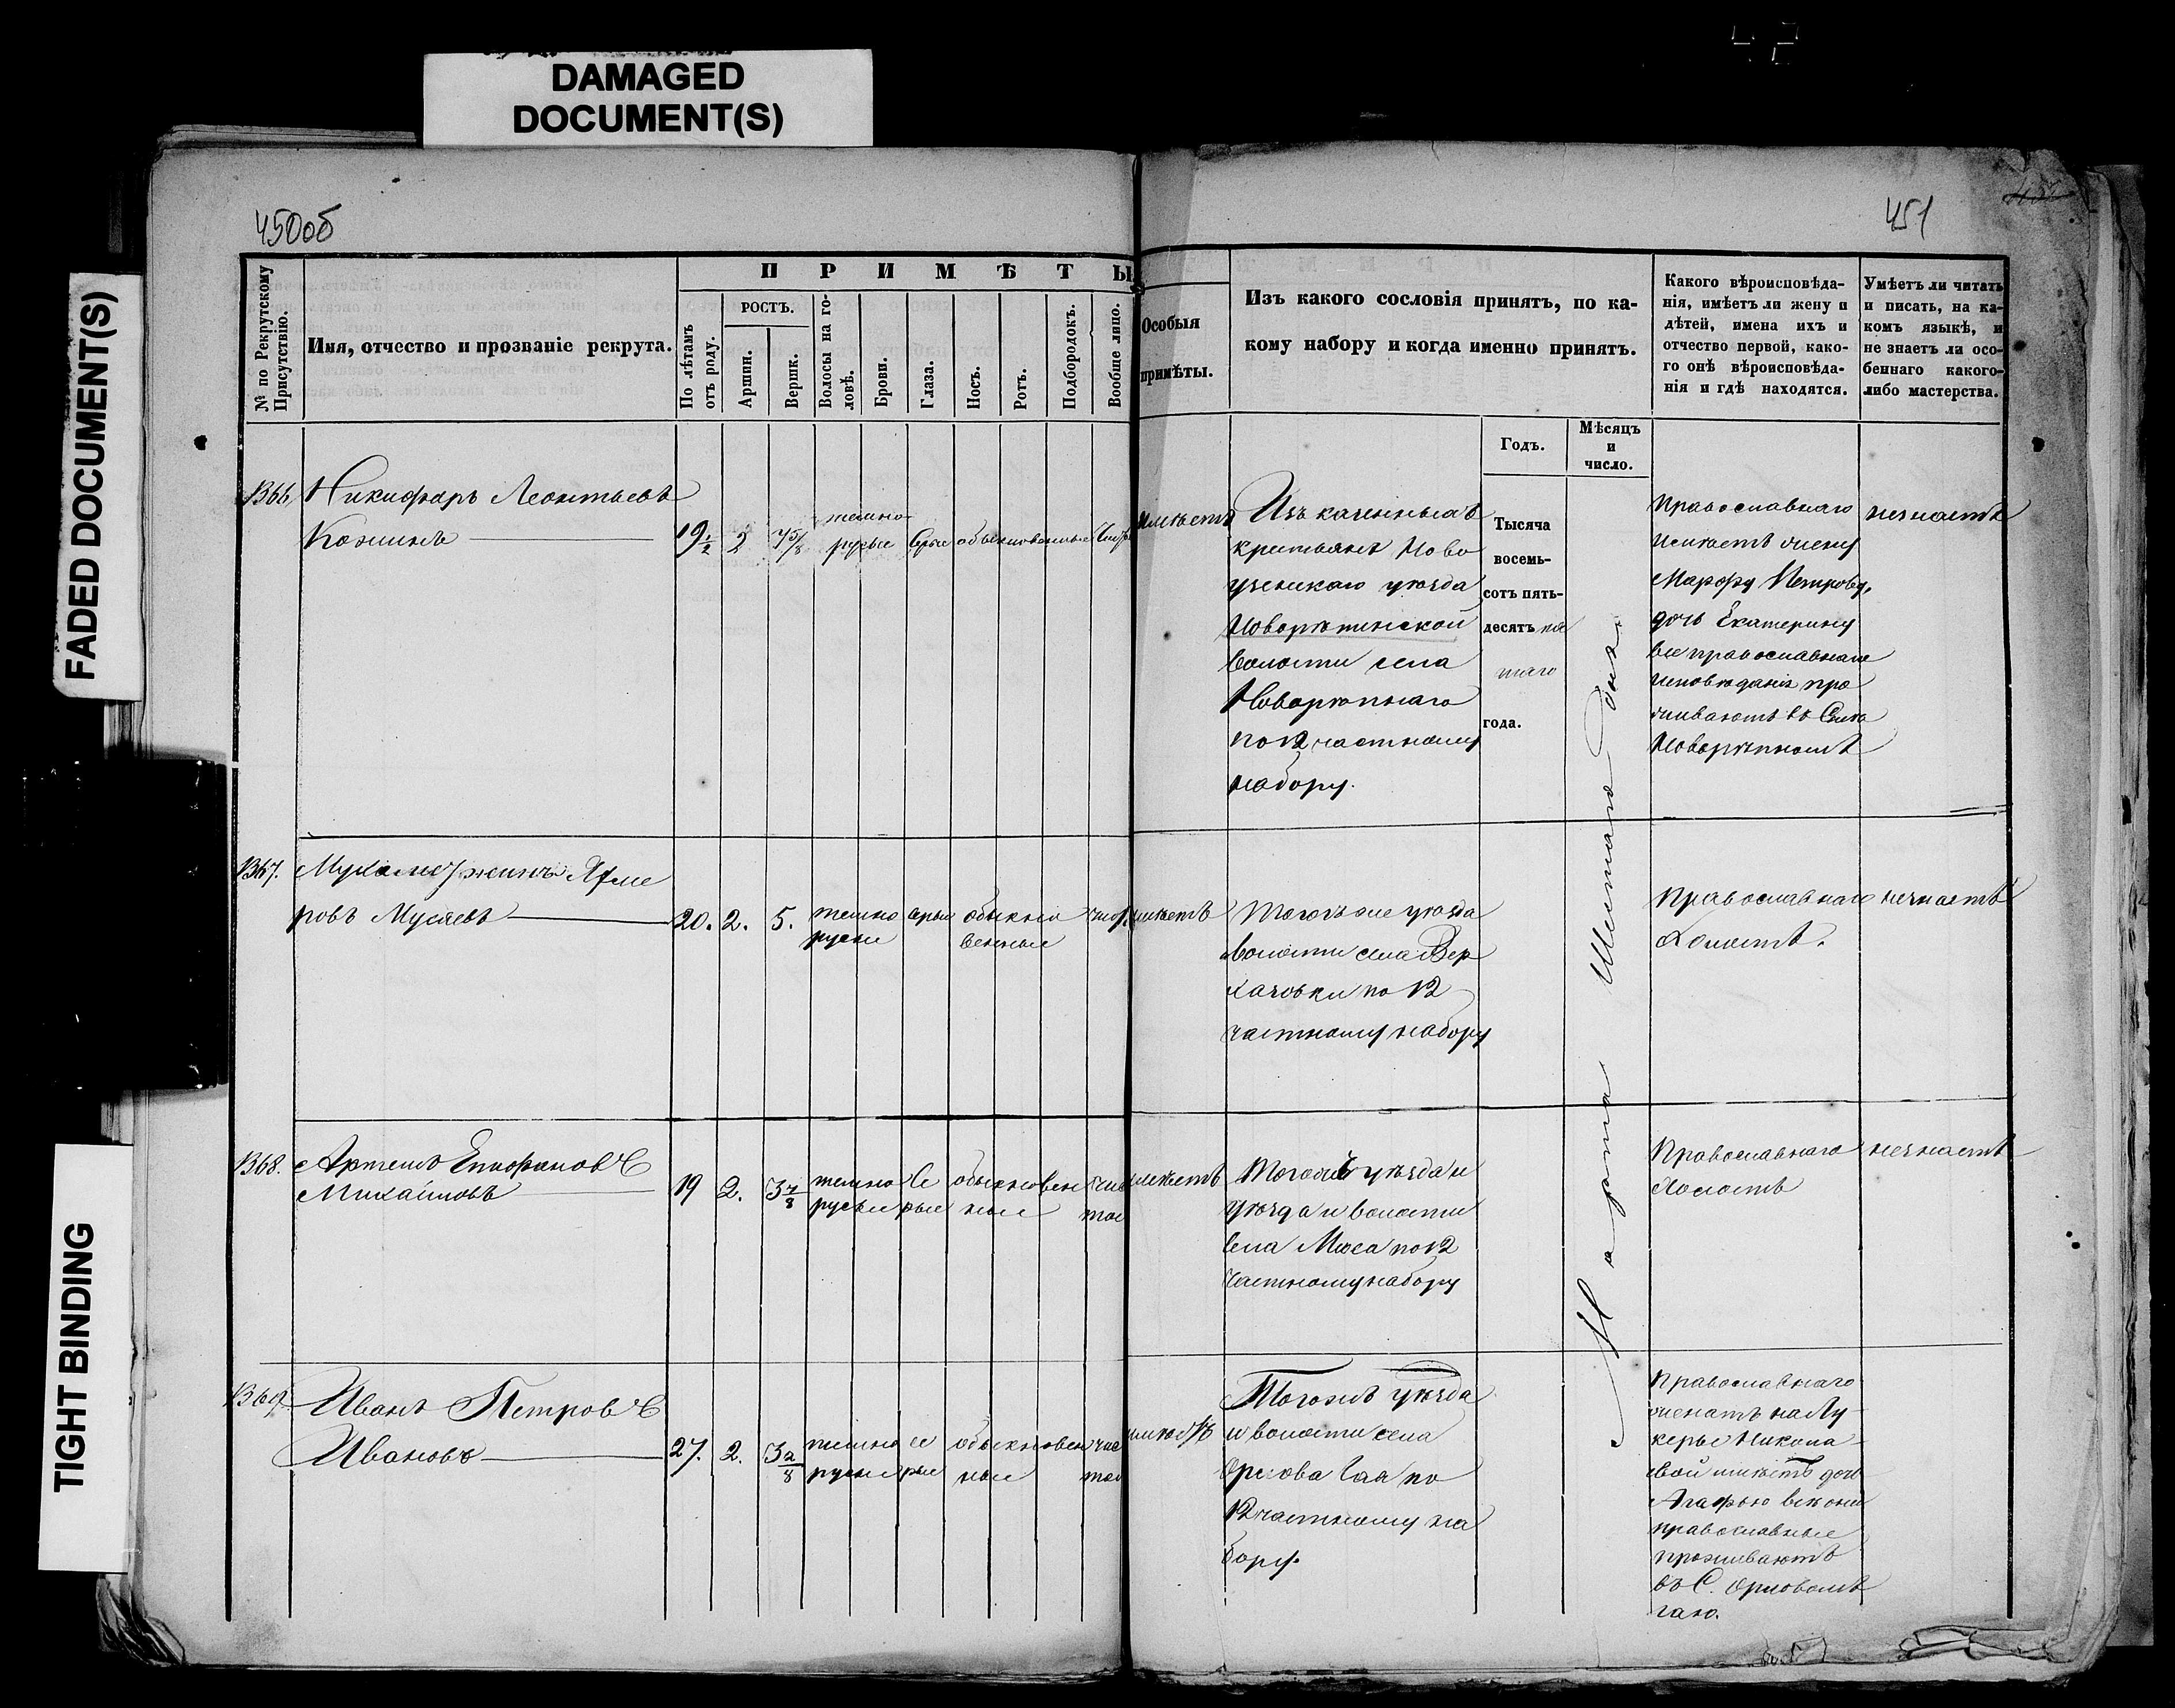 DAMAGED
DOCUMENT(S)
FADED DOCUMENT(S)
TIGHT BINDING
450об
451
№ по Рекрутскому
Присутствію.
Имя, отчество и прозваніе рекрута.
ПРИМѢТЫ
По лѣтамъ
отъ роду.
РОСТЪ.
Аршин.
Вершк.
Волосы на го-
ловѣ.
Брови.
Глаза.
Носъ.
Ротъ.
Подбородокъ.
Вообще лицо.
Особыя
примѣты.
Изъ какого сословія принятъ, по ка-
кому набору и когда именно принятъ.
Годъ.
Мѣсяцъ
и
число.
Какого вѣроисповѣда-
нія, имѣетъ ли жену и
дѣтей, имена ихъ и
отчество первой, како-
го онѣ вѣроисповѣда-
нія и гдѣ находятся.
Умѣетъ ли читать
и писать, на ка-
комъ языкѣ, и
не знаетъ ли осо-
беннаго какого-
либо мастерства.
1366
Никифоръ Леонтьевъ
Кожинъ
19 1/2
2
7 5/8
темно
русые
Серые
обыкновенные
Изъ казенныхъ
крестьянъ Ново
узенскаго уезда
Новорѣпинской
волости села
Новорѣпнаго
по 12 частному
набору.
Тысяча
восемь-
сотъ пять-
десятъ пя
таго
года.
Марта Шестаго дня
Православнаго
имѣетъ жену
Марфу Петрову,
дочь Екатерину
все православнаго
исповеданія про
живаютъ въ Селѣ
Новорѣпномъ
незнаетъ
1367.
ровъ Мусаевъ
20.
2.
5.
темно
русые
серые
обыкно
венные
Тогожъ уезда
волости села Вер
хазовки по 12
частному набору
Православнаго
Холостъ.
незнаетъ
1368.
Артемъ Епифановъ
Михайловъ
19
2.
3 7/8
темно
русые
Се
рые
обыкновен
ные
чис
тое
Тогожъ уезда и
уезда и волости
села Мокса по 12
Частному набору
Православнаго
Холостъ
незнаетъ
1369.
Иванъ Петровъ
Ивановъ
27.
2.
3 2/8
темно
русые
се
рые
обыкновен
ные
чис
тое
Тогожъ уезда
и волости села
Орлова Гая по
12 частному на
бору.
Православнаго
женатъ на Лу
керье Никола
евой имѣетъ дочь
Агафью все они
православные
проживаютъ
въ С. Орловомъ
гаю.